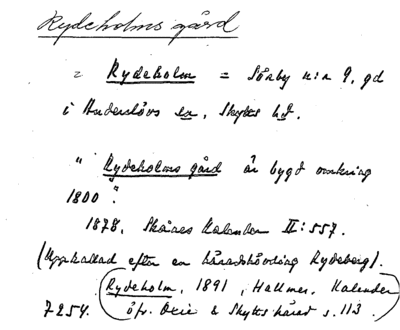 Rydeholms gård
= Rydeholm = Sörby n:a 9, gd
i Anderslövs sn, Skytts hd.
"Rydeholms gård är bygd omkring
1800".
1878, Skånes Kalender II:557.
(Uppkallad efter en häradshövding Rydeberg).
(Rydeholm, 1891, Hallmer, Kalender
7254. öfv. Oxie & Skytts härad s. 113